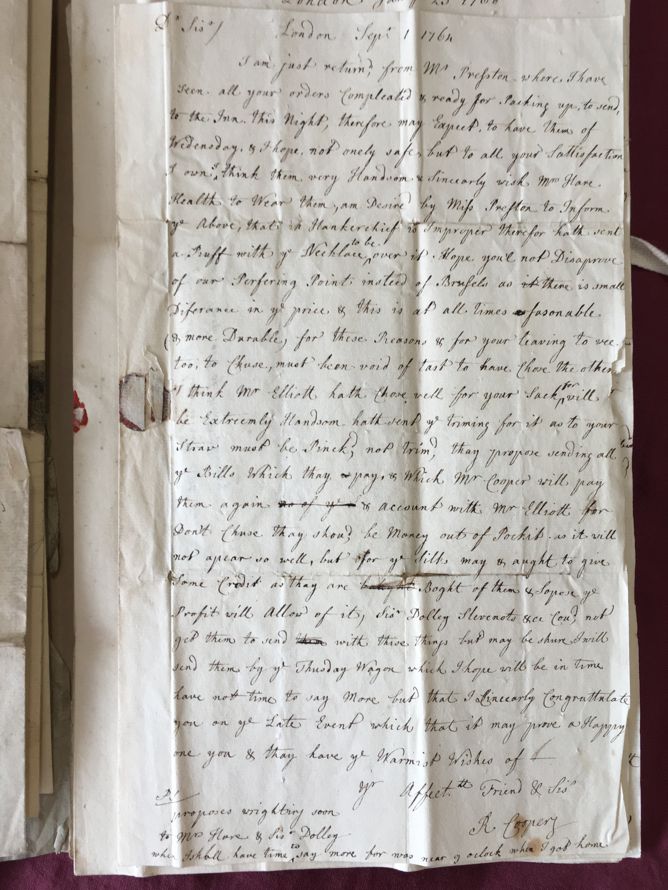 Dr Sisr/ London Sepr 1 1764
I am just returnd, from Mrs Presston where I have
seen all your orders Compleated & ready for Packing up, to send,
to the Inn this Night, therefore may Expect to have them of
Wedensday, & I hope not onely safe, but to all your Sattisfaction
I own I, think them very Handsom & Sincearly wish Mrs Hare
Health to Wear them, am Desired by Miss Preston to Inform
ye Above, that a Hankerchief is Improper therefor hath sent
a Ruff with ye Necklace to be over it Hope you'l not Disaprove
of our Perfering Point insteed of Brusels as it there is small
Diferance in ye price & this is at all times fasonable
(& more Durable, for these Reasons & for your leaving to vee
too, to Chuse, must been void of tast to have Chose the other
I think Mr Elliott hath Chose well for your Sack for will
be Extreemly Handsom hath sent ye triming for it as to your
Strav must be Pinck'd, not trim'd, thay propose sending all
ye Bills Which thay pay, & Which Mr Cooper will pay
them again no of ye & account with Mr Elliott for
Don't Chuse thay shoud be Money out of Pockit as it will
not apear so well, but for ye silk may & aught to give
Some Credit as thay are Boght of them & Sopose ye
Profit will Allow of it, Sisr Dolley Slevenots &c Coud not
get them to send them with these things but may be shure I will
send them by ye Thusday Wagon which I hope will be in time
have not time to say More but that I Sincearly Congruttulate
you on ye Late Event which that it may prove a Happy
one you & thay have ye Warmist Wishes of
yr Affectte Friend & Sisr
R Cooper
PS/
proposes wrighting soon
to Mrs Hare & Sisr Dolley
when I shall have time to say more for was near 9 oclock when I got home